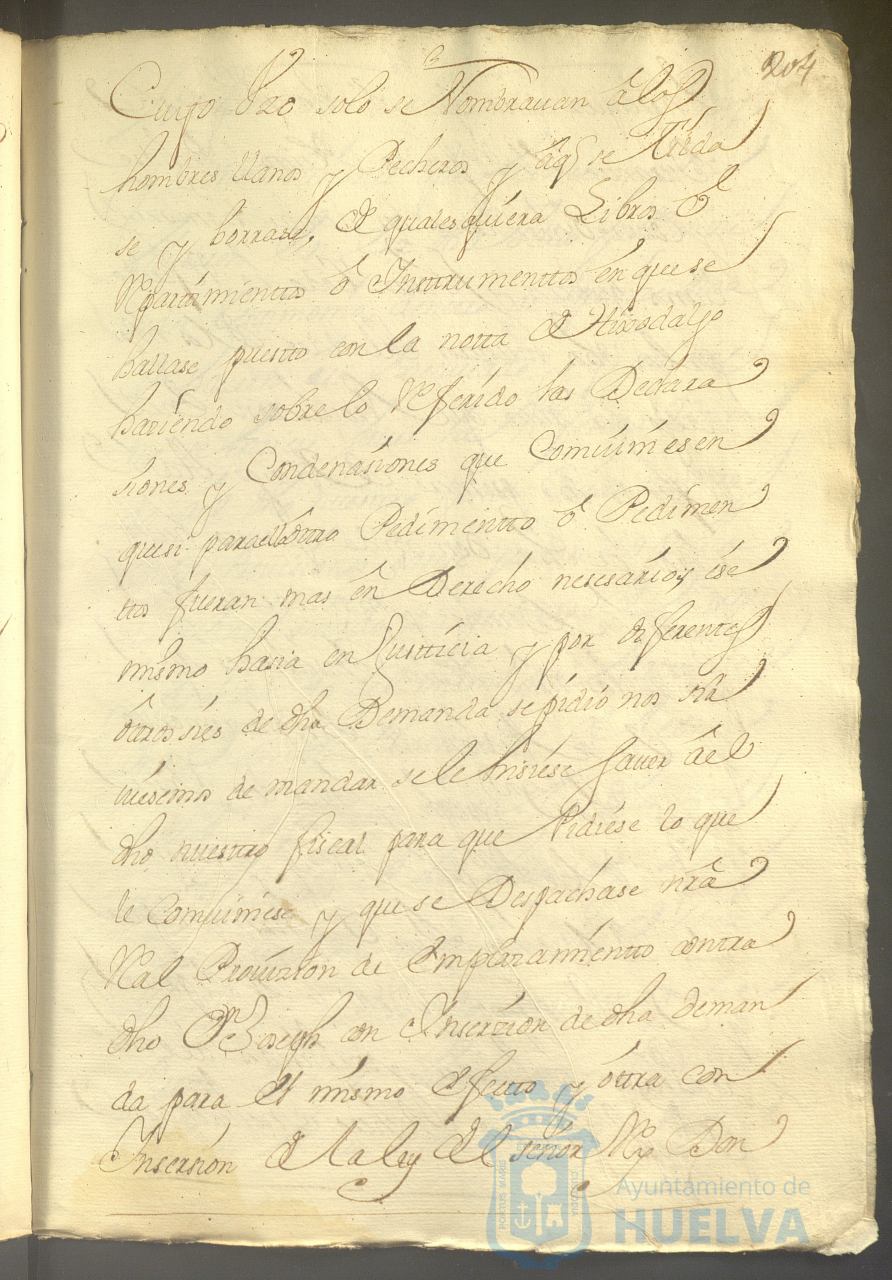 204
Cuyo Uzo solo se Nombrauan â los
hombres llanos y Pecheros y âq̃ se tilda
se y borrase, de qualesquiera Libros ô
Repartimientto ô Insttrumenttos en que se
hallase puestto con la notta de Hixodalgo
haciendo sobre lo Referido las Declara
siones y Condenasiones que Comuiniesen
que si para ello ôttro Pedimientto ô Pedimen
ttos fueran mas en Derecho nesesario, y ese
mismo hasia en Justticia y por diferentes
ôttrosies de dha Demanda se pidió nos sir
uiesemos de mandar se le hisiese sauer âel
dho nuesttro fiscal para que Pidiese lo que
le Comuiniese y que se Despachase nrâ
Real Prouizion de Emplazamientto conttra
dho Dn Joseph con Inserzion de dha deman
da para el mismo efectto y ôttra con
Insersion de la ley del señor Rey Don
Ayuntamiento de
HUELVA